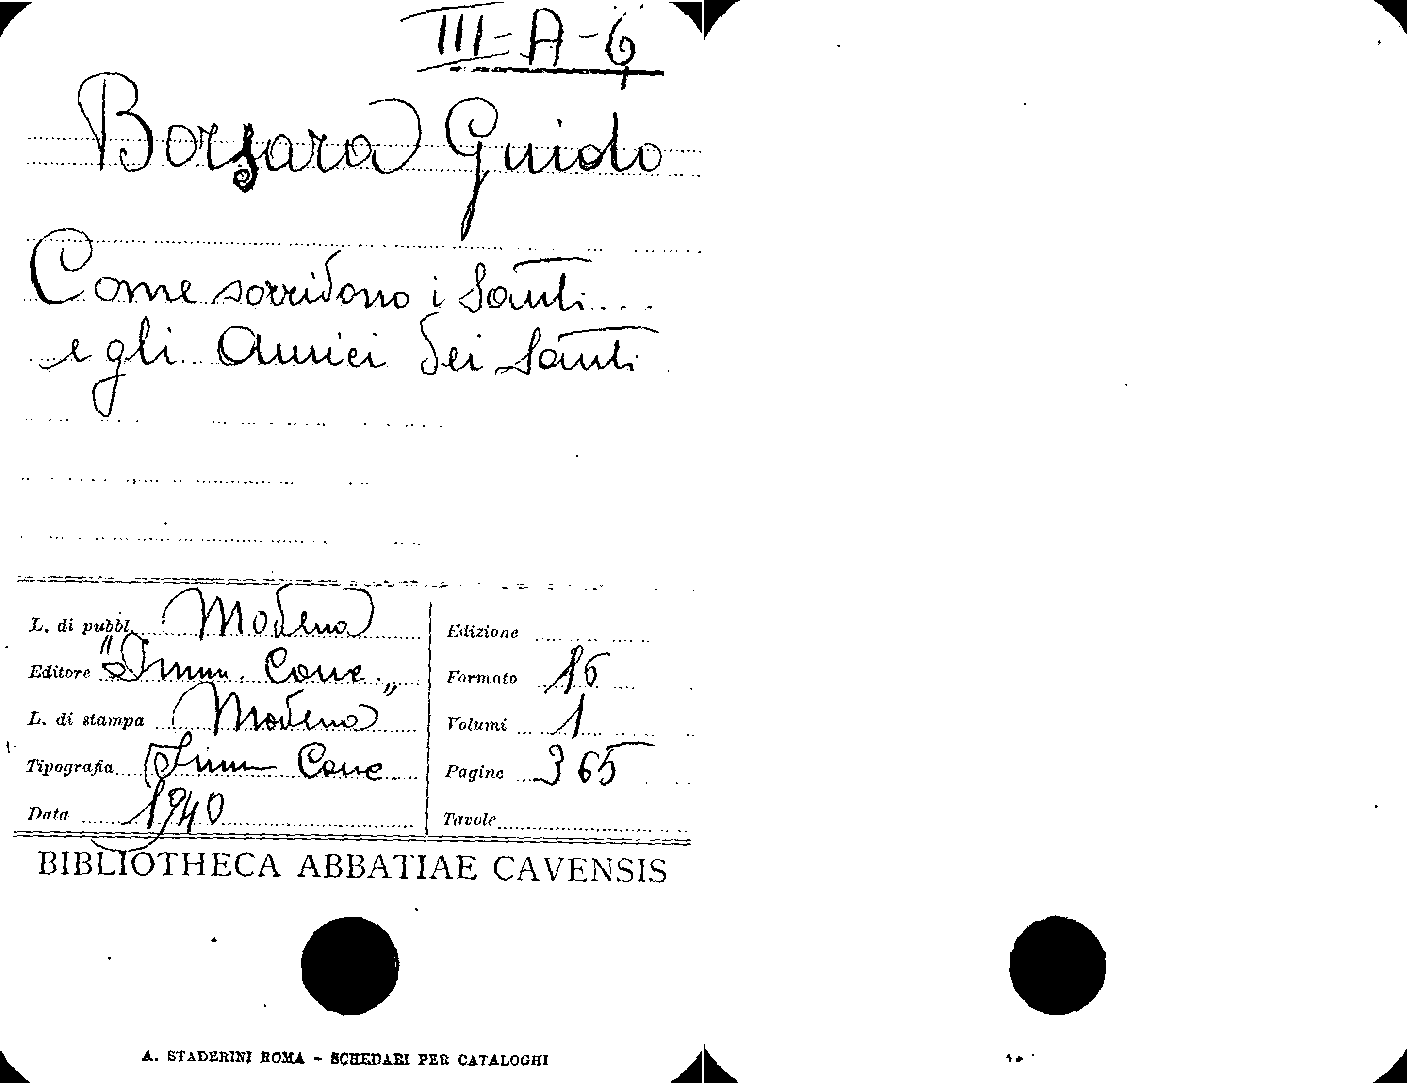 III-A-6
Borsara Guido
Come sorridono i Santi...
e gli Amici dei Santi
L. di pubbl. Modena
Editore "Imm. Conc."
L. di stampa Modena
Tipografia Imm Conc
Data 1940
Edizione
Formato 16
Volumi 1
Pagine 365
Tavole
BIBLIOTHECA ABBATIAE CAVENSIS
A. STADERINI ROMA - SCHEDARI PER CATALOGHI